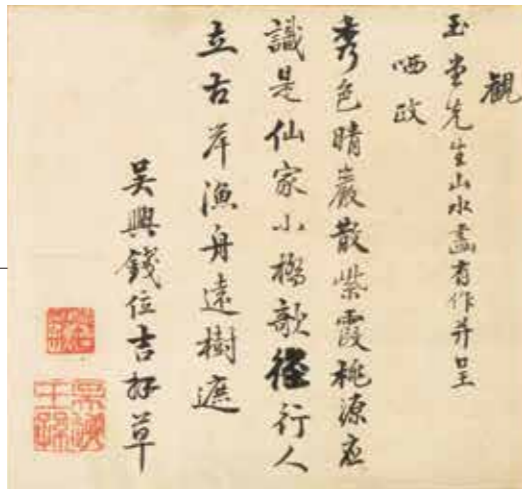 觀
玉堂先生山水畫有作并呈
哂政
秀色晴巖散紫霞桃源應
識是仙家小橋欹徑行人
立古岸漁舟遠樹遮
吳興錢位吉拜草
吳越王孫